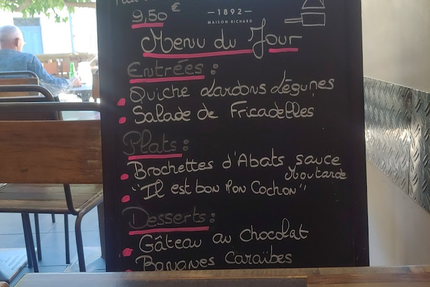 9,50 €
1892
MAISON RICHARD
Menu du Jour
Entrées :
Quiche lardons légumes
Salade de Fricadelles
Plats :
Brochettes d'Abats sauce
Moutarde
"Il est bon mon Cochon"
Desserts :
Gâteau au chocolat
Bananes Caraibes